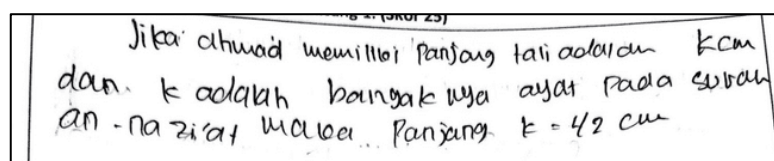 Jika ahmad memiliki Panjang tali adalah k cm
dan. k adalah banyak nya ayat Pada surah
an-nazi'at maka.. Panjang k = 42 cm